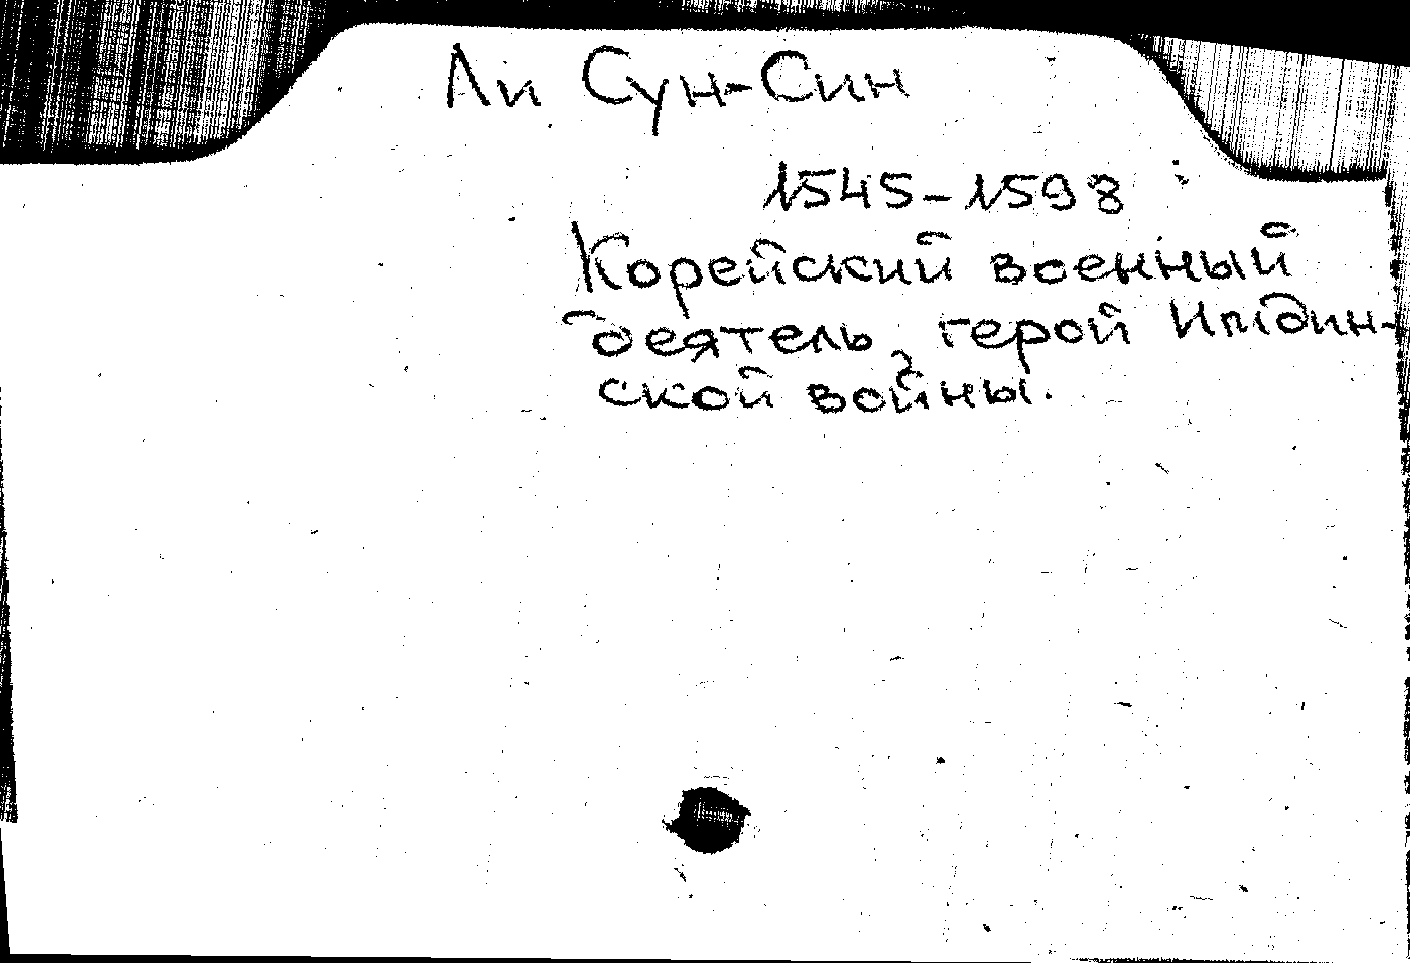 Ли Сун-Син
1545-1598
Корейский военный
деятель, герой Имдин-
ской войны.